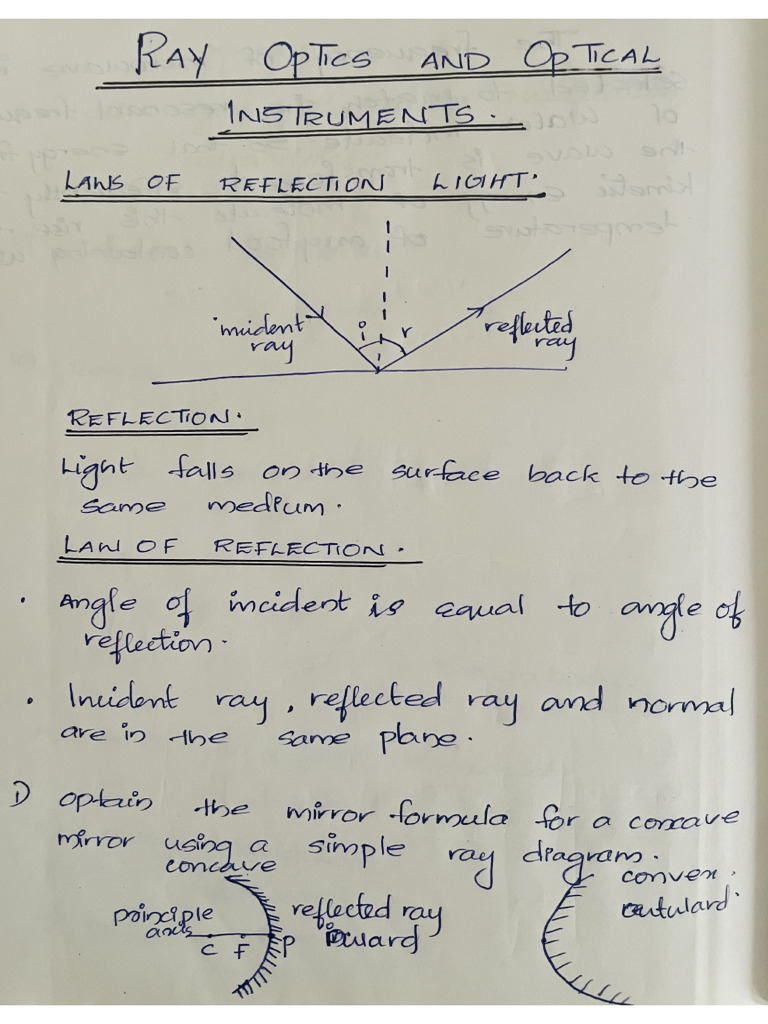 RAY OPTICS AND OPTICAL
INSTRUMENTS.
LAWS OF REFLECTION LIGHT.
incident ray
i r
reflected ray
REFLECTION.
Light falls on the surface back to the
same medium.
LAW OF REFLECTION.
· Angle of incident is equal to angle of
reflection.
· Incident ray, reflected ray and normal
are in the same plane.
1) Optain the mirror formula for a concave
mirror using a simple ray diagram.
concave
principle axis
C F P
reflected ray
inward
convex.
outulard.